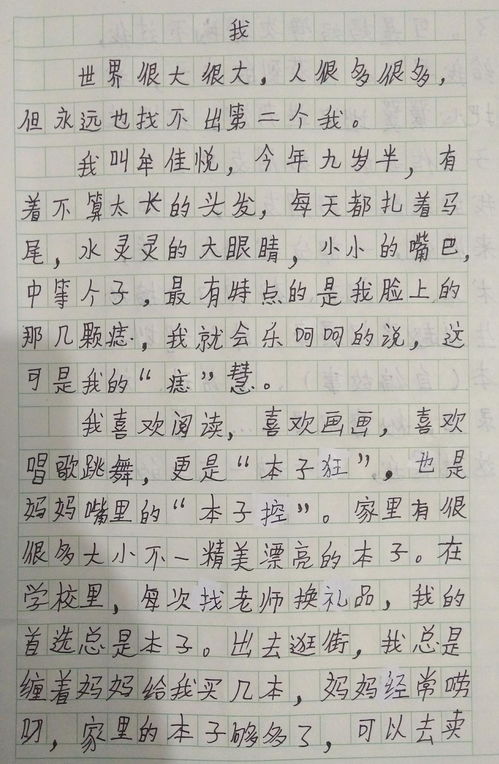 我
世界很大很大，人很多很多，
但永远也找不出第二个我。
我叫牟佳悦，今年九岁半，有
着不算太长的头发，每天都扎着马
尾，水灵灵的大眼睛，小小的嘴巴，
中等个子，最有特点的是我脸上的
那几颗痣，我就会乐呵呵的说，这
可是我的“痣”慧。
我喜欢阅读，喜欢画画，喜欢
唱歌跳舞，更是“本子狂”，也是
妈妈嘴里的“本子控”。家里有很
很多大小不一精美漂亮的本子。在
学校里，每次找老师换礼品，我的
首选总是本子。出去逛街，我总是
缠着妈妈给我买几本，妈妈经常唠
叨，家里的本子够多了，可以去卖